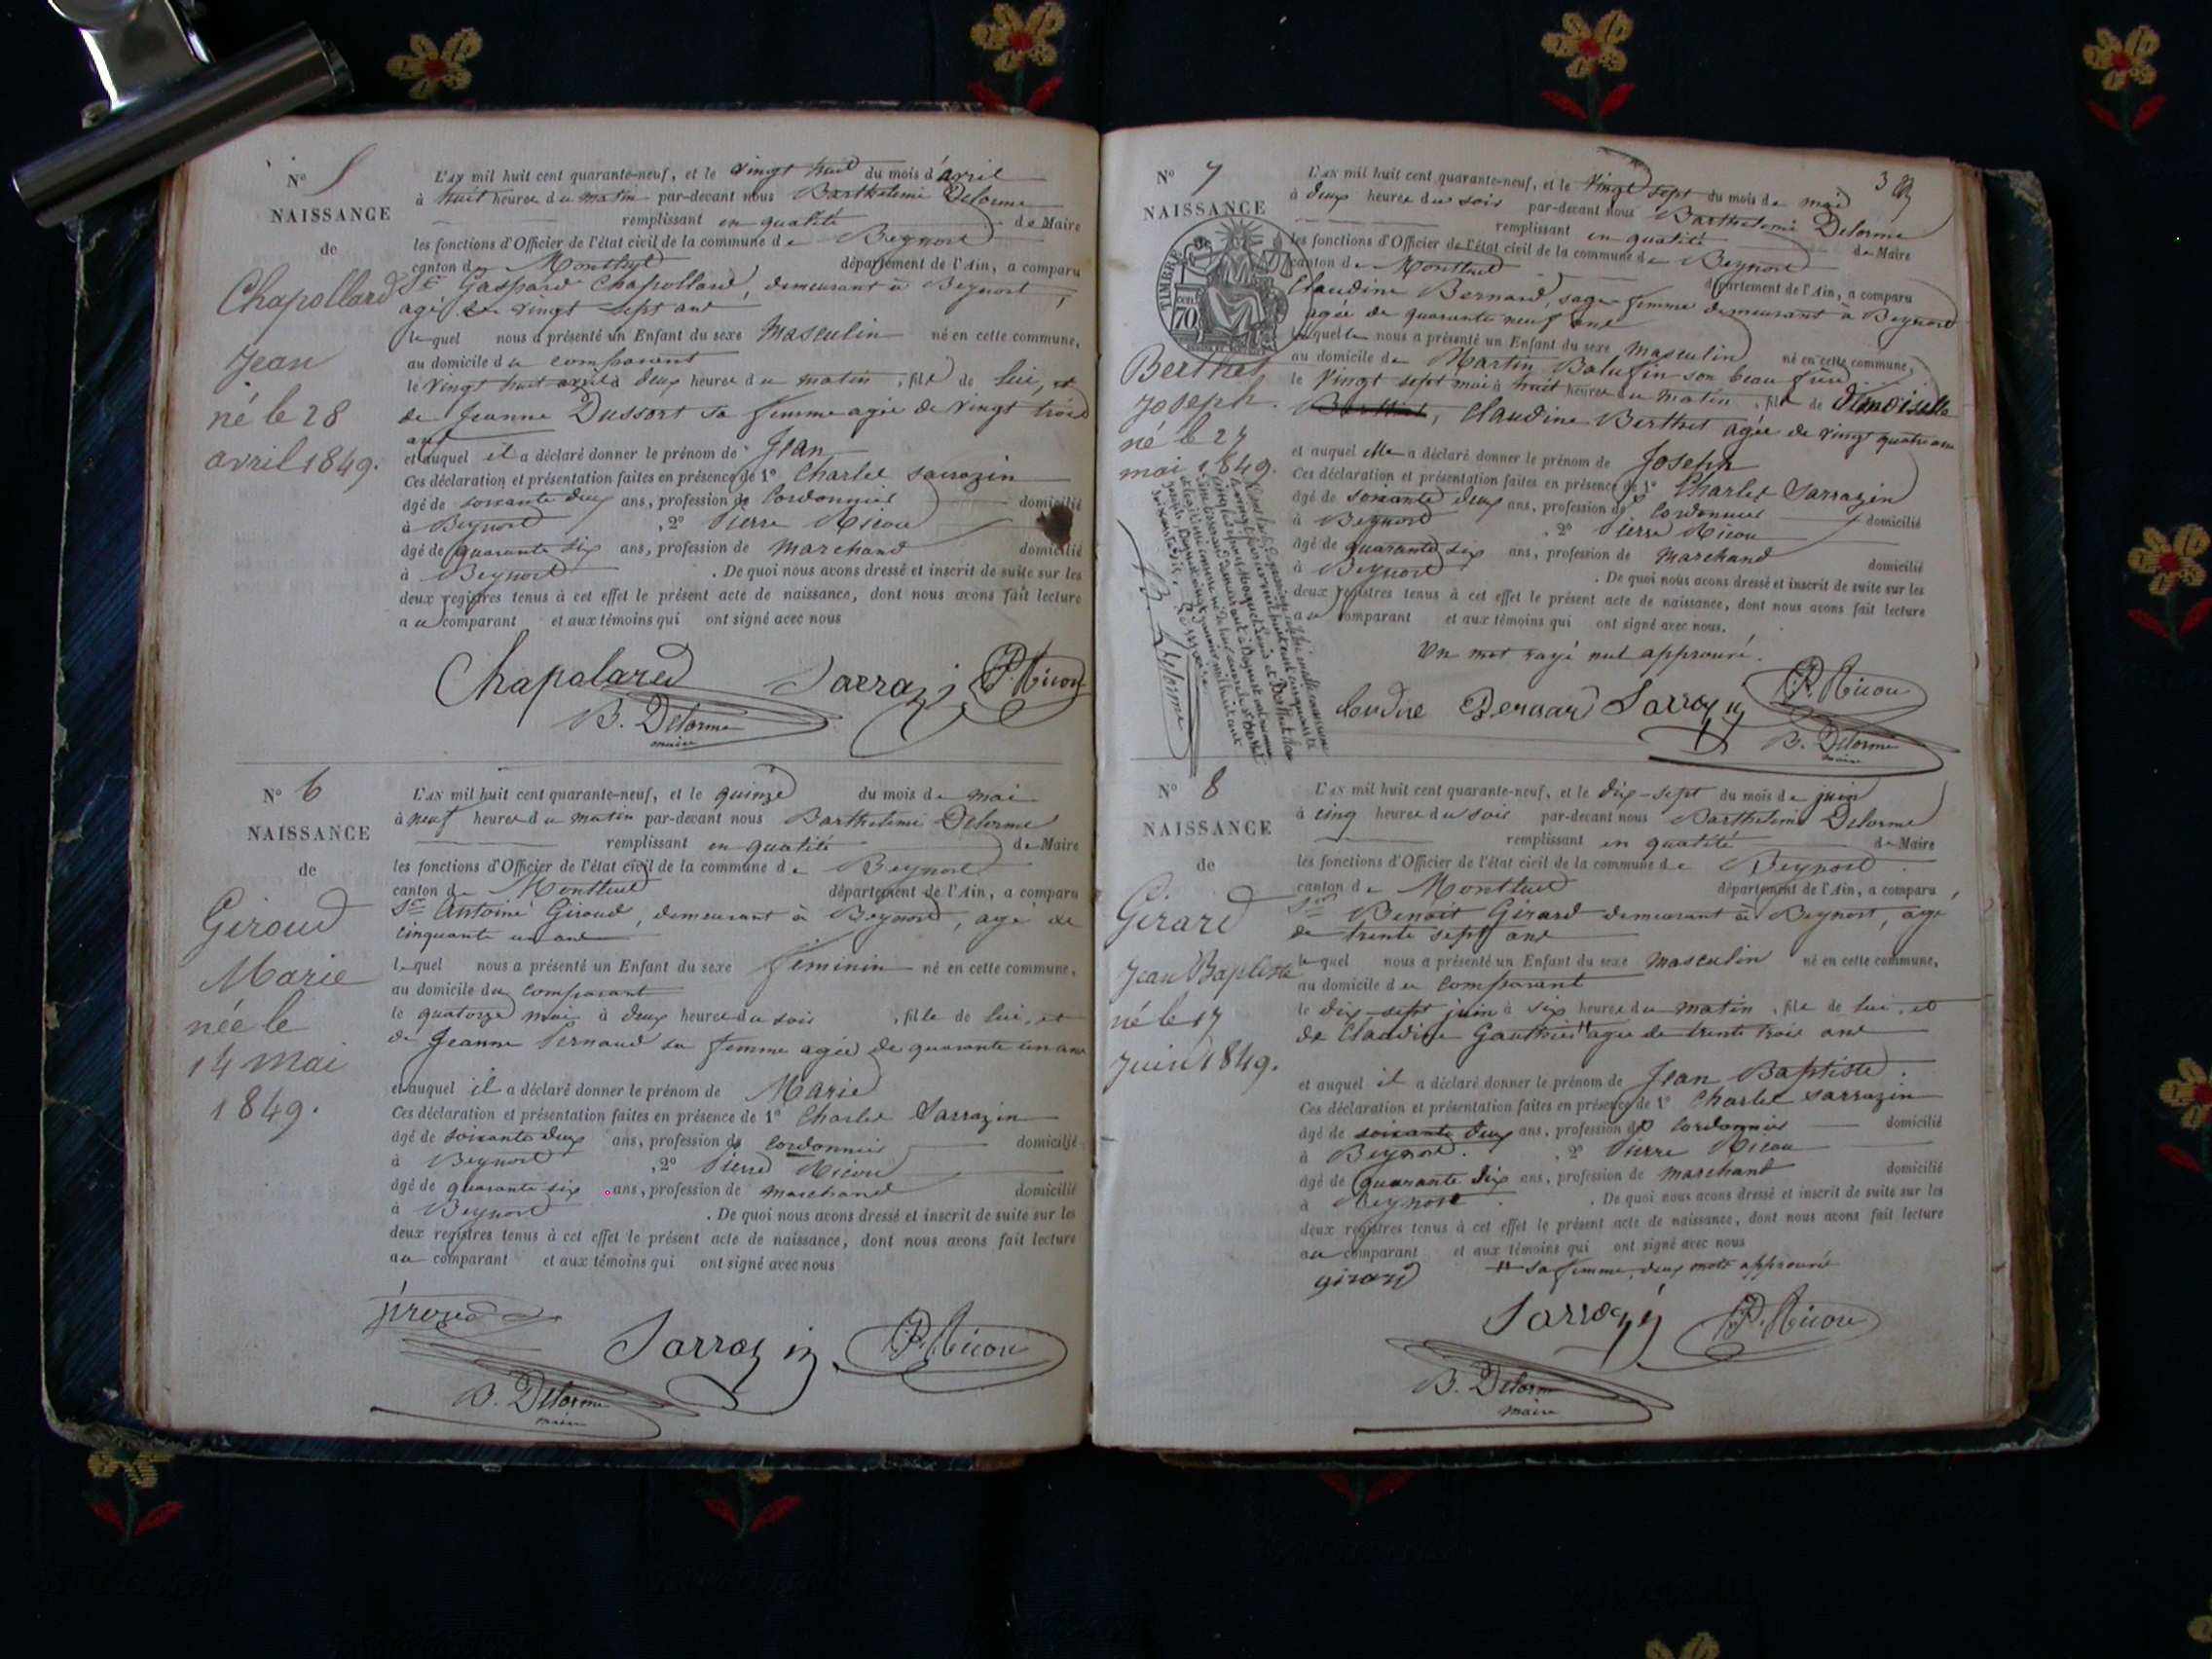 N° 5
NAISSANCE
de
Chapollard
Jean
né le 28
avril 1849.
L'AN mil huit cent quarante-neuf, et le vingt huit du mois d'avril
à huit heures du matin par-devant nous Barthelemi Delorme
remplissant en qualité de Maire
les fonctions d'Officier de l'état civil de la commune de Beynost
canton de Montluel département de l'Ain, a comparu
Sr Gaspard Chapollard, demeurant à Beynost,
agé de vingt sept ans
lequel nous a présenté un Enfant du sexe Masculin né en cette commune,
au domicile du comparant
le vingt huit avril à deux heures du matin, fils de lui, et
de Jeanne Dussort sa femme agée de vingt trois
ans
et auquel il a déclaré donner le prénom de Jean
Ces déclaration et présentation faites en présence de 1° Charles Sarrazin
âgé de soixante deux ans, profession de Cordonnier domicilié
à Beynost, 2° Pierre Nicou
âgé de quarante six ans, profession de marchand domicilié
à Beynost. De quoi nous avons dressé et inscrit de suite sur les
deux registres tenus à cet effet le présent acte de naissance, dont nous avons fait lecture
au comparant et aux témoins qui ont signé avec nous
Chapolard Sarrazin P. Nicou
B. Delorme
maire
N° 6
NAISSANCE
de
Giroud
Marie
née le
14 mai
1849.
L'AN mil huit cent quarante-neuf, et le quinze du mois de mai
à neuf heures du matin par-devant nous Barthelemi Delorme
remplissant en qualité de Maire
les fonctions d'Officier de l'état civil de la commune de Beynost
canton de Montluel département de l'Ain, a comparu
Sr Antoine Giroud, demeurant à Beynost, age de
cinquante un ans
lequel nous a présenté un Enfant du sexe féminin né en cette commune,
au domicile du comparant
le quatorze mai à deux heures du soir, fille de lui, et
de Jeanne Pernaud sa femme agée de quarante un ans
et auquel il a déclaré donner le prénom de Marie
Ces déclaration et présentation faites en présence de 1° Charles Sarrazin
âgé de soixante deux ans, profession de Cordonnier domicilié
à Beynost, 2° Pierre Nicou
âgé de quarante six ans, profession de marchand domicilié
à Beynost. De quoi nous avons dressé et inscrit de suite sur les
deux registres tenus à cet effet le présent acte de naissance, dont nous avons fait lecture
au comparant et aux témoins qui ont signé avec nous
giroud
Sarrazin P. Nicou
B. Delorme
maire
N° 7
NAISSANCE
TIMBRE
70
Berthet
Joseph.
né le 27
mai 1849.
B. Delorme
3
L'AN mil huit cent quarante-neuf, et le vingt sept du mois de mai
à deux heures du soir par-devant nous Barthelemi Delorme
remplissant en qualité de Maire
les fonctions d'Officier de l'état civil de la commune de Beynost
canton de Montluel département de l'Ain, a comparu
Claudine Bernard, sage femme demeurant à Beynost
agée de quarante neuf ans
laquelle nous a présenté un Enfant du sexe masculin né en cette commune,
au domicile de Martin Balufin son beau frère
le vingt sept mai à huit heures du matin, fils de demoiselle
Claudine Berthet agée de vingt quatre ans
et auquel elle a déclaré donner le prénom de Joseph
Ces déclaration et présentation faites en présence de 1° Charles Sarrazin
âgé de soixante deux ans, profession de Cordonnier domicilié
à Beynost, 2° Pierre Nicou
âgé de quarante six ans, profession de marchand domicilié
à Beynost. De quoi nous avons dressé et inscrit de suite sur les
deux registres tenus à cet effet le présent acte de naissance, dont nous avons fait lecture
au comparant et aux témoins qui ont signé avec nous.
Un mot rayé nul approuvé.
Claudine Bernard Sarrazin P. Nicou
B. Delorme
maire
N° 8
NAISSANCE
de
Girard
Jean Baptiste
né le 17
Juin 1849.
L'AN mil huit cent quarante-neuf, et le dix-sept du mois de juin
à cinq heures du soir par-devant nous Barthelemi Delorme
remplissant en qualité de Maire
les fonctions d'Officier de l'état civil de la commune de Beynost
canton de Montluel département de l'Ain, a comparu
Sr Benoit Girard demeurant à Beynost, agé
de trente sept ans
lequel nous a présenté un Enfant du sexe masculin né en cette commune,
au domicile du comparant
le dix-sept juin à six heures du matin, fils de lui, et
de Claudine Gauthier agée de trente trois ans
et auquel il a déclaré donner le prénom de Jean Baptiste.
Ces déclaration et présentation faites en présence de 1° Charles Sarrazin
âgé de soixante deux ans, profession de Cordonnier domicilié
à Beynost. 2° Pierre Nicou
âgé de quarante six ans, profession de marchand domicilié
à Beynost. De quoi nous avons dressé et inscrit de suite sur les
deux registres tenus à cet effet le présent acte de naissance, dont nous avons fait lecture
au comparant et aux témoins qui ont signé avec nous
girard sa femme, deux mots approuvés
Sarrazin P. Nicou
B. Delorme
maire